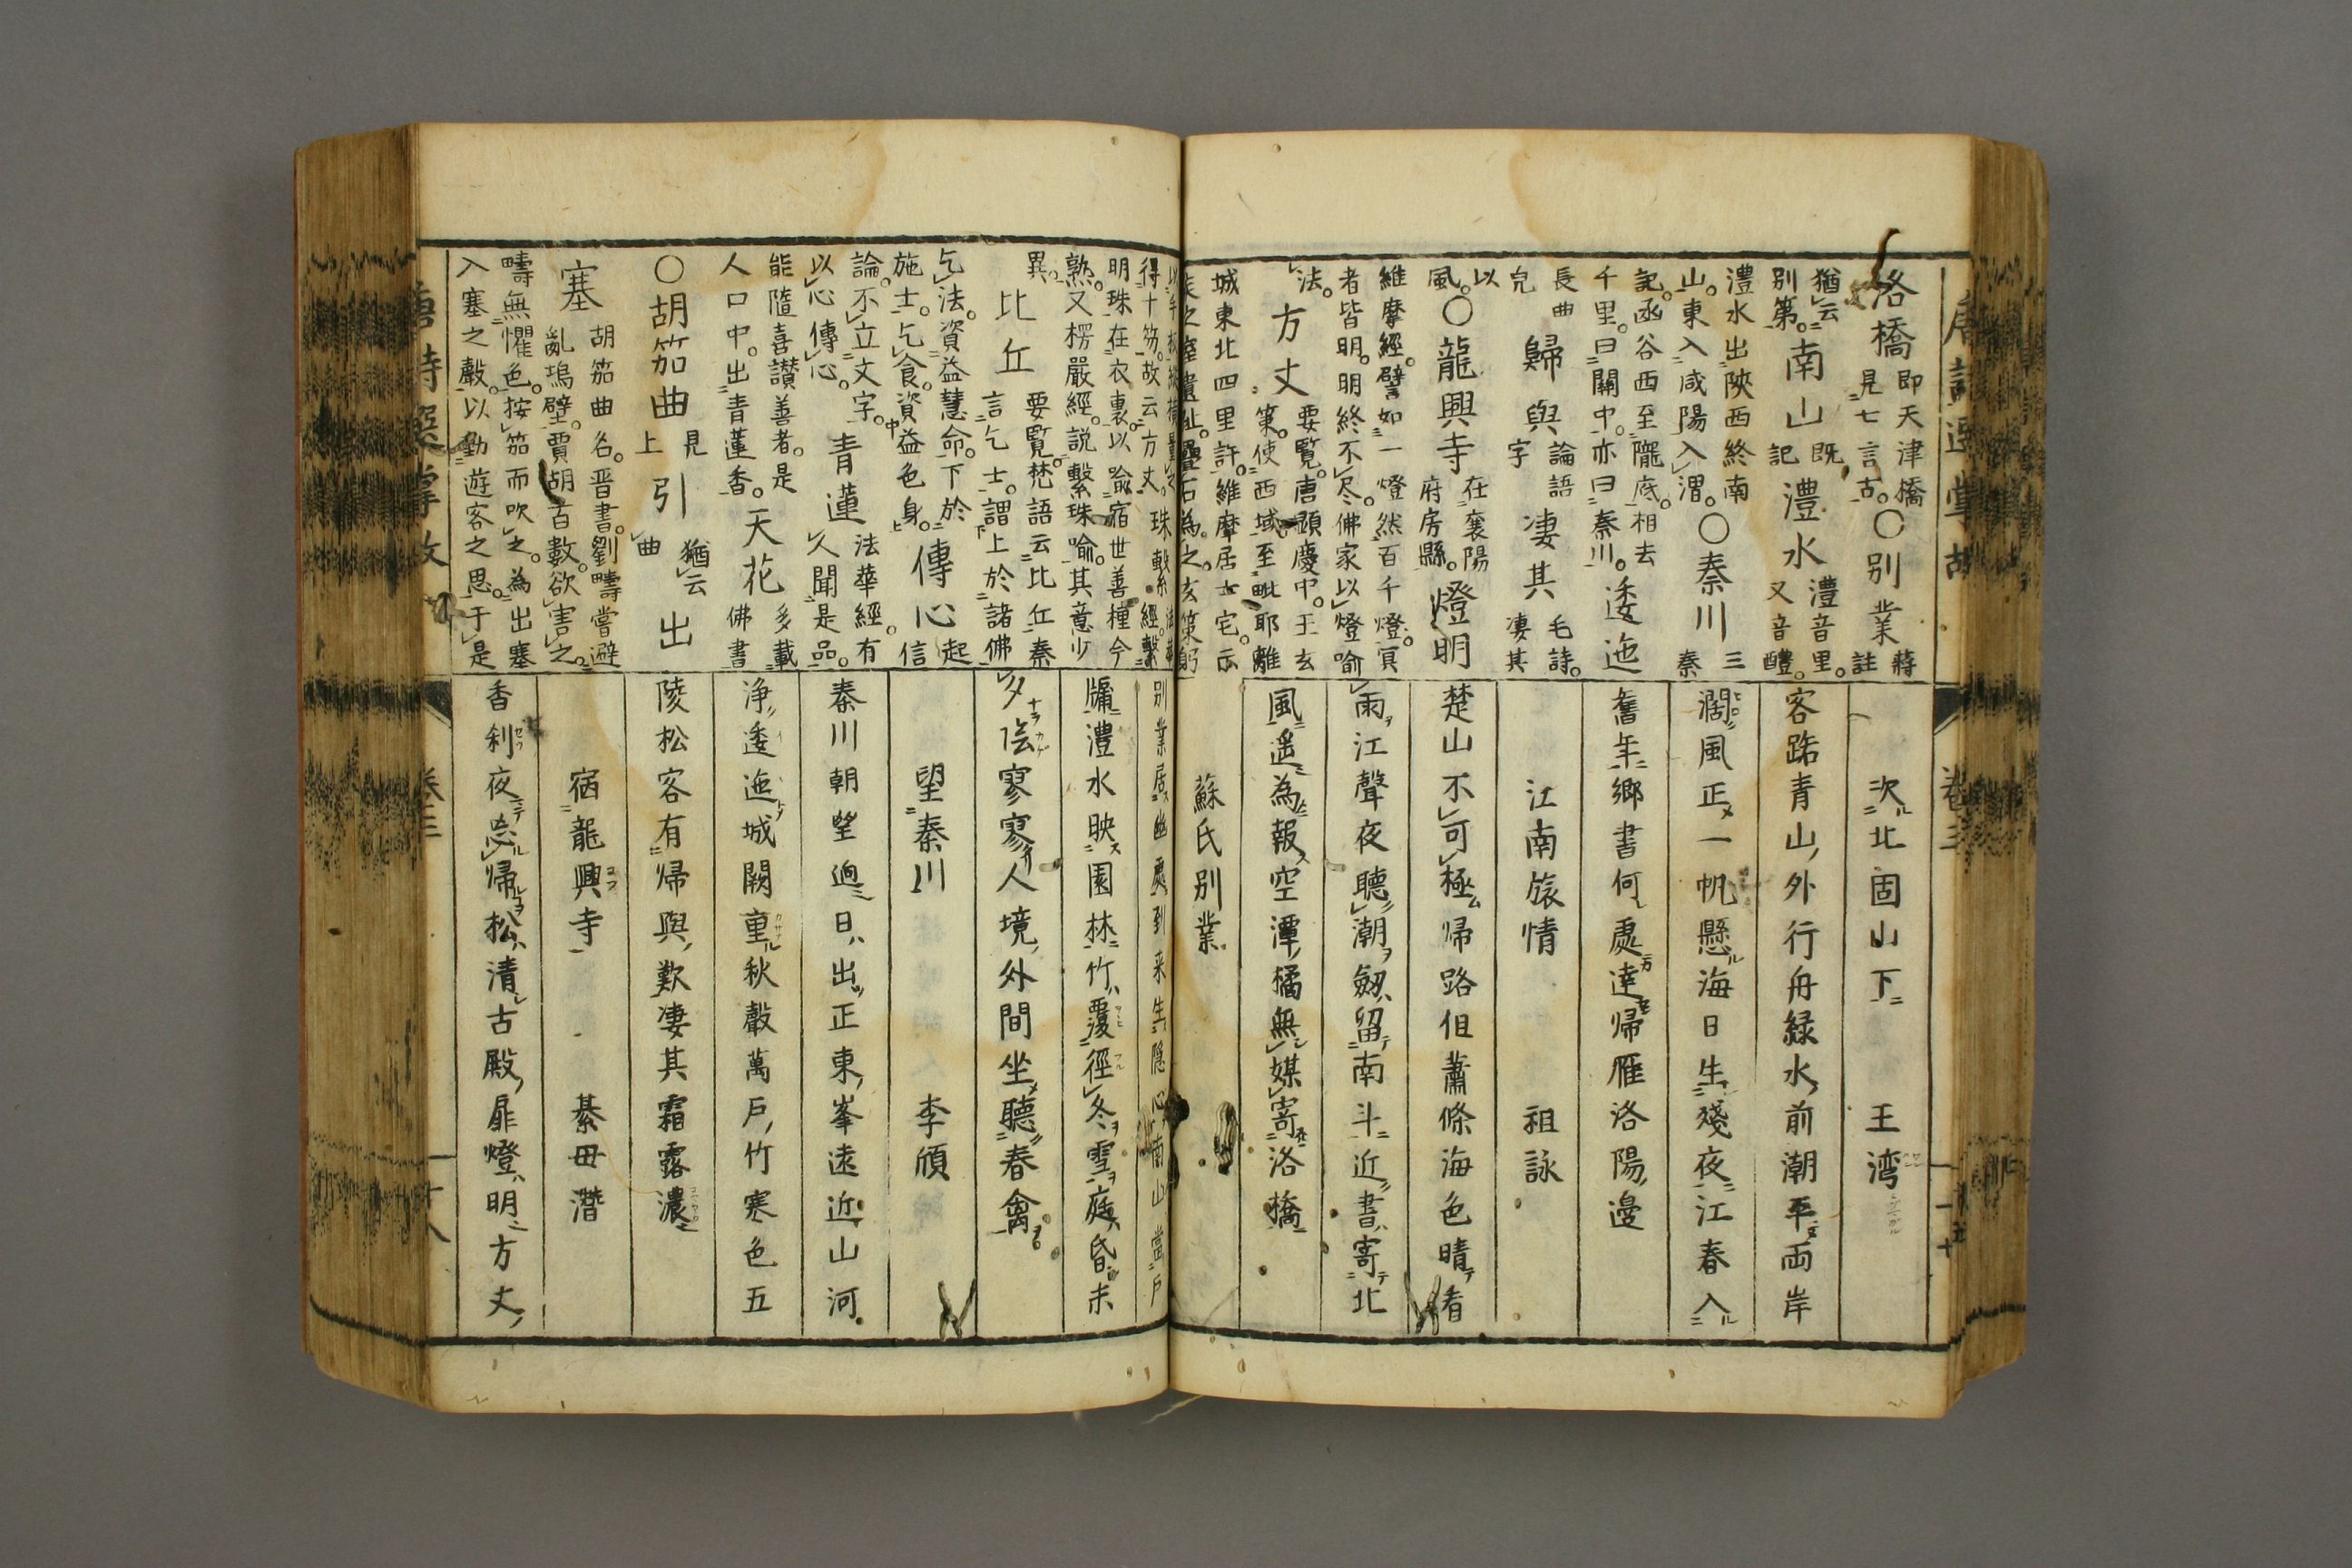 唐詩選掌故
卷三
洛橋 即天津橋
見七言古。○別業 蔣註
猶云
別第。南山 既記 澧水 澧音里。
又音醴。
澧水出陝西終南
山。東入咸陽入渭。○秦川 三秦
記。函谷西至隴底。相去
千里。曰關中。亦曰秦川。逶迤
長曲皃 歸與 論語字 凄其 毛詩。凄其
以風。○龍興寺 在襄陽府房縣。燈明
維摩經。譬如一燈然百千燈。冥
者皆明。明終不尽。佛家以燈喻
法。方丈 要覧。唐顕慶中。王玄
策。使西域至毗耶離
城東北四里許。維摩居士宅。示
疾之室遺址。疊石為之。玄策躬
次北固山下 王湾
客路青山外行舟緑水前潮平両岸
濶風正一帆懸海日生殘夜江春入
舊年郷書何處達帰雁洛陽邊
江南旅情 祖詠
楚山不可極帰路但蕭條海色晴看
雨江聲夜聽潮劔留南斗近書寄北
風遥為報空潭橘無媒寄洛橋
蘇氏別業
以手板縱橫量之。
得十笏。故云方丈。珠繫 經。繫
明珠在衣裏。以喩宿世善種今
熟。又楞嚴經。説繫珠喻。其意少
異。比丘 要覧。梵語云比丘秦
言乞士。謂上於諸佛
乞法。資益慧命。下於
施士。乞食。資益色身。傳心 起信
論。不立文字。
以心傳心。青蓮 法華經。有
人聞是品。
能隨喜讃善者。是
人口中。出青蓮香。天花 多載佛書
○胡笳曲 見上 引 猶云曲 出
塞 胡笳曲名。晋書。劉疇嘗避
亂塢壁。賈胡百數。欲害之。
疇無懼色。按笳而吹之。為出塞
入塞之聲。以動遊客之思。于是
別業居幽處到来生隠心南山當戸
牖澧水映園林竹覆徑冬雪庭昏未
夕陰寥寥人境外間坐聽春禽
望秦川 李頎
秦川朝望逈日出正東峯遠近山河
浄逶迤城闕重秋聲萬戸竹寒色五
陵松客有帰與歎凄其霜露濃
宿龍興寺 綦毋潛
香刹夜忘帰松清古殿扉燈明方丈
唐詩選掌故
卷三
十八